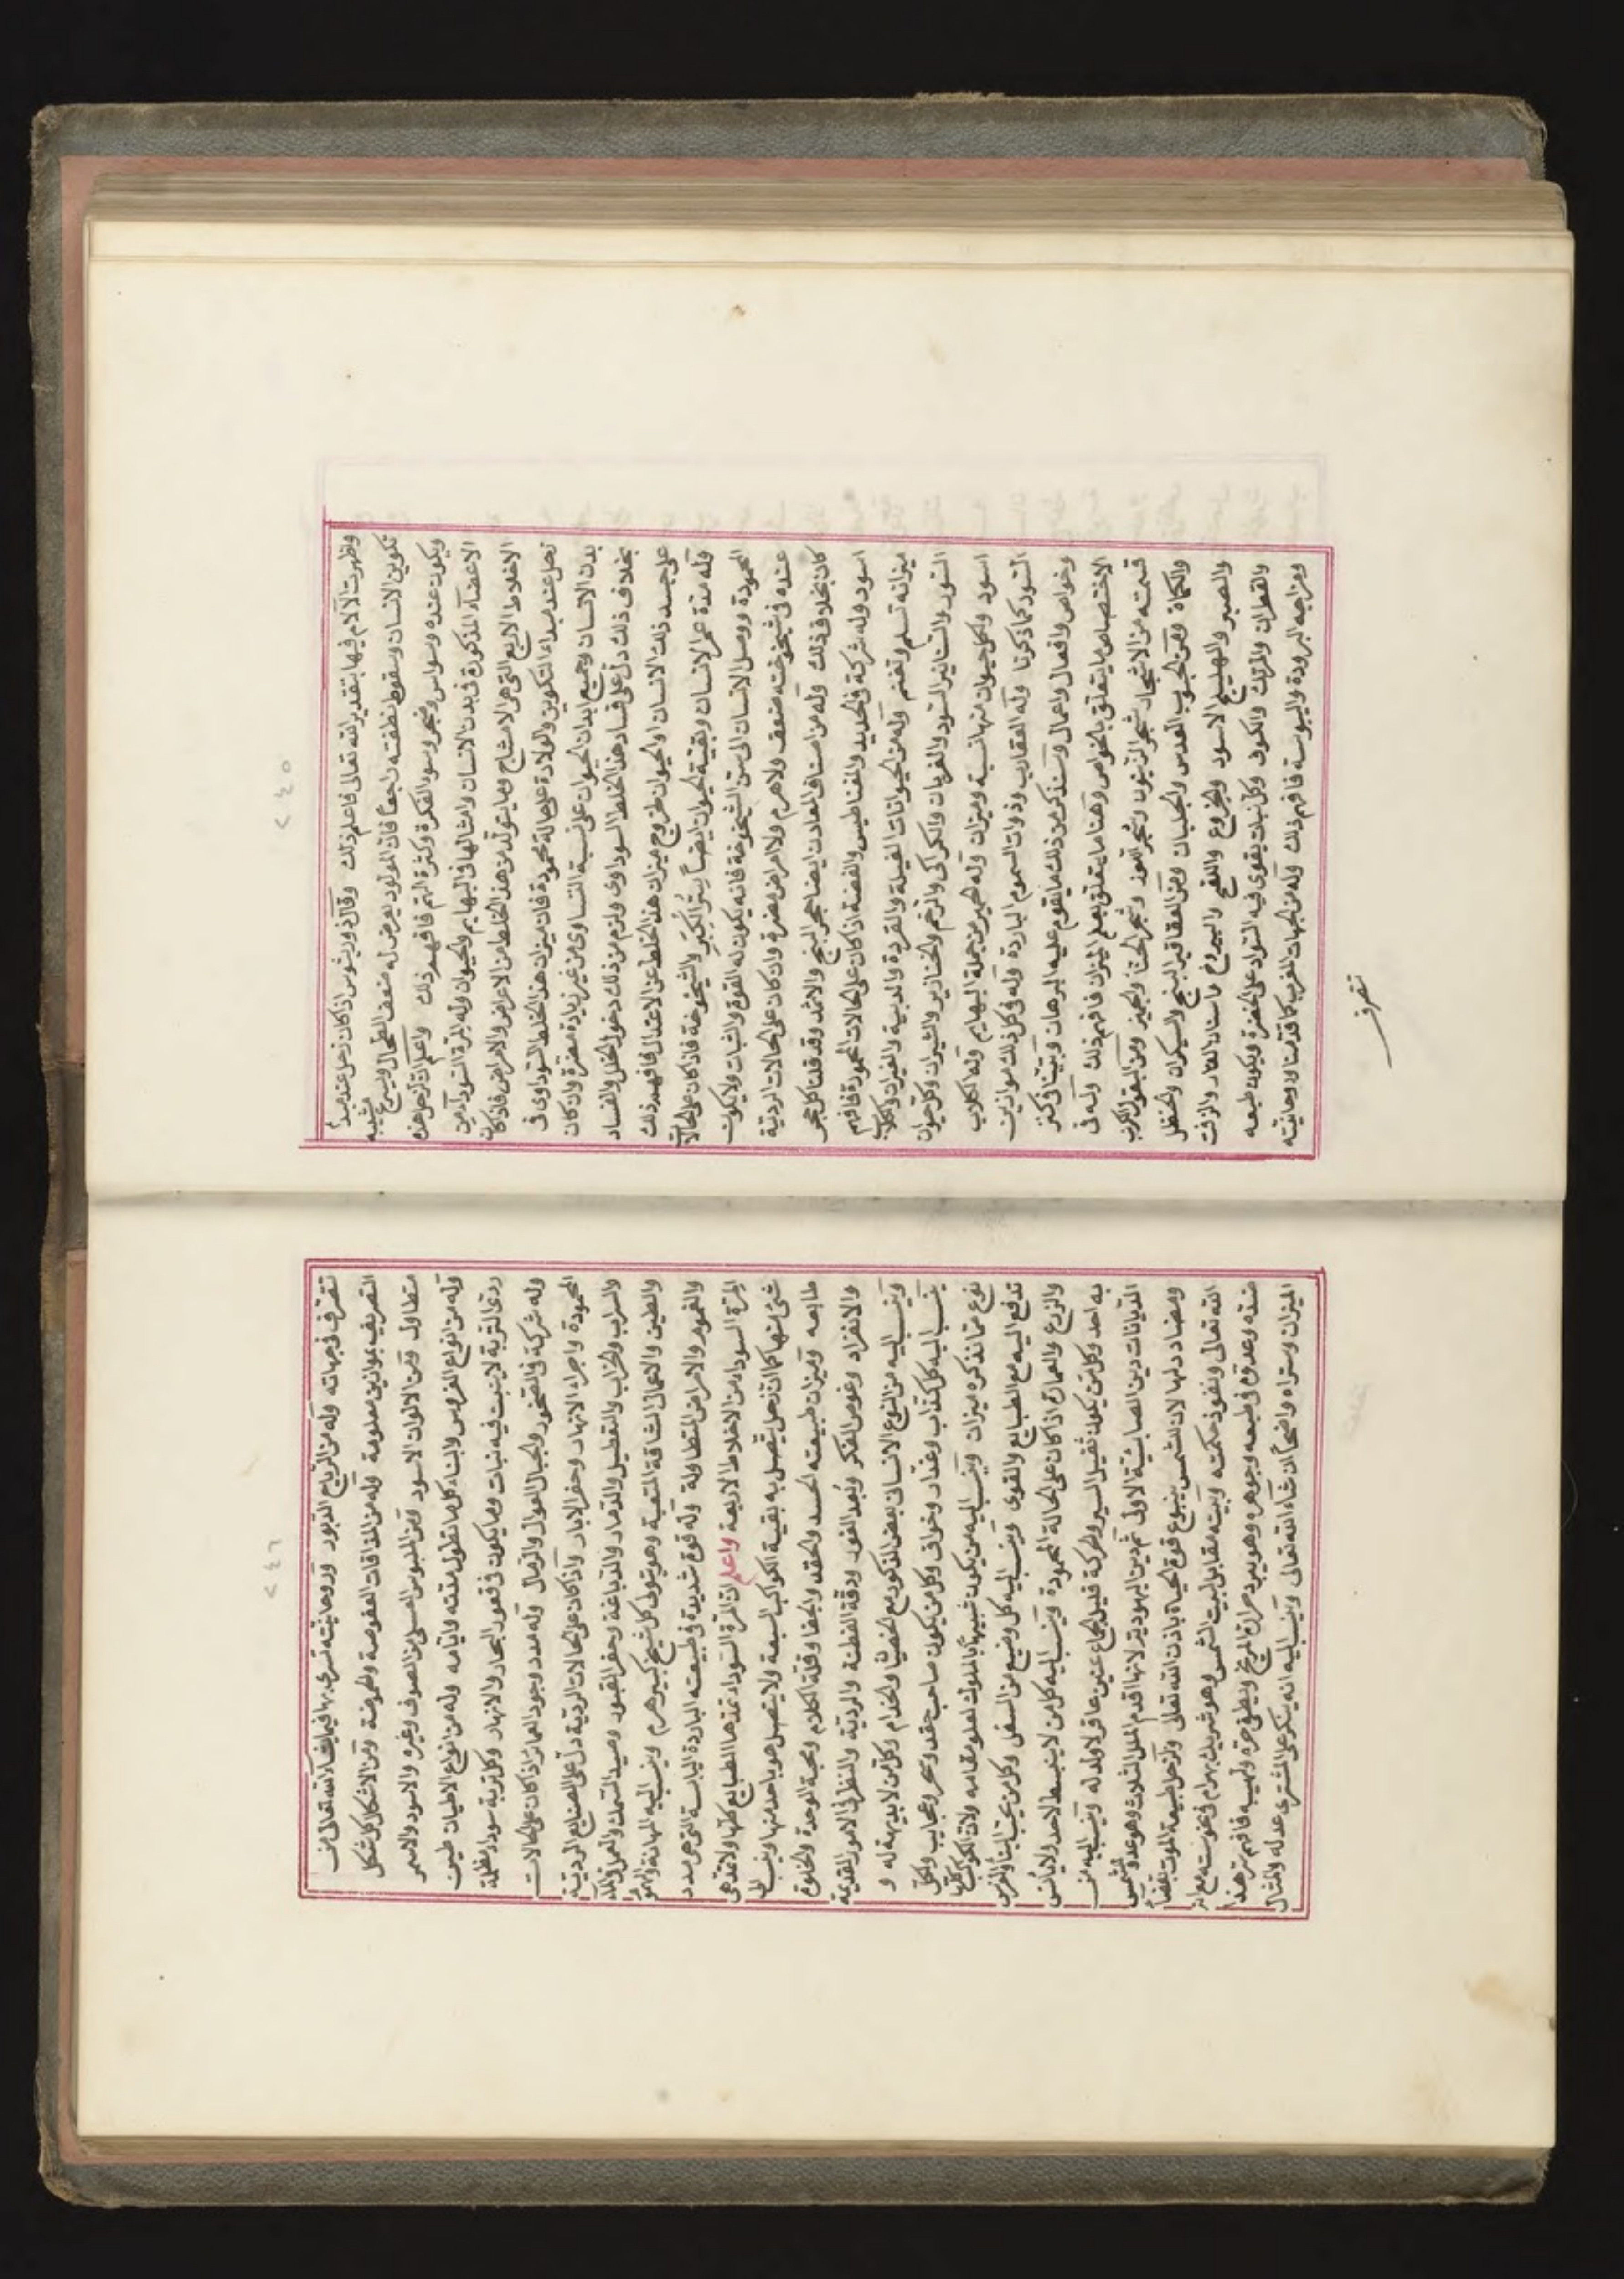 ٢٤٥
وظهرت الآلام فيها بتقدير الله تعالى فاعلم ذلك وقال ذوريثوس اذا كان زحل عند مبدأ
تكوين الانسان وسقوط نطفته راجعاً فان المولود يعرض له ضعف الطحال ويسرع شيبه
ويكون عنده وسواس وضجر وسوء الفكرة وكثرة الهم فافهم ذلك واعلم ان لزحل هذه
الاعضاء المذكورة فى بدن الانسان وامثالها فى البهايم والحيوان وله المرة السوداء من
الاخلاط الاربع التى هى الامشاج وما يتولد من هذا الخلط من الاعراض والامراض فاذا كان
زحل عند مبداء التكوين والولادة على حالة محمودة فان ميزان هذا الخلط السوداوى فى
بدن الانسان وجميع ابدان الحيوان على نسبة التساوى من غير زيادة مضرة وان كان
بخلاف ذلك دل على فساد هذا الخلط السوداوى ولزم من ذلك دخول الخلل والفساد
على جسد ذلك الانسان او الحيوان لخروج ميزان هذا الخلط عن الاعتدال فافهم ذلك
وله مدة عمر الانسان وبقية الحيوان ايضاً سن الكبر والشيخوخة فاذا كان على الحالات
المحمودة ووصل الانسان الى سن الشيخوخة فانه يكون له القوة والثبات ولا يكون
عنده فى شيخوخته ضعف ولا هرم ولا امراض مضرة وان كان على الحالات الردية
كان بخلاف ذلك وله من اصناف المعادن ايضا حجر السبج والاثمد وقد قلنا كل حجر
اسود وله شركة فى الحديد والمغناطيس والفضة اذا كان على الحالات المحمودة فافهم
ميزانه تسلم وتغنم وله من الحيوانات الفيلة والقردة والدببة والفيران والكلاب
السود والسنانير السود والغربان والكراكى والرخم والخنازير والثيران وكل حيوان
اسود ولكل حيوان منها نسبة وميزان وله الحمير من جملة البهايم وله الكلاب
السود كما ذكرنا وله العقارب وذوات السموم الباردة وله فى كل ذلك موازين
وخواص وافعال واعمال وسنذكر من ذلك ما يقوم عليه البرهان وبيّنا فى كنز
الاختصاص ما يتعلق بالخواص وهنا ما يتعلق بعلم الميزان فافهم ذلك وله فى
قسمته من الاشجار شجر الزيتون وشجر اللوز وشجر الحنا والجميز ومن البقول الكرنب
والكماة ومن الحبوب العدس والجلبان ومن العقاقير البنج والسيكران والحنظل
والصبر والهليلج الاسود والخروع واللفح واليبروح واسنان الفار والزفت
والقطران والمرتك والكروف وكل نبات يقوى فيه السواد على الخضرة ويكون طبعه
ومزاجه البرودة واليبوسة فافهم ذلك وله من الجهات المغرب كما قدمنا لا روحانيته
تتصرف
٢٤٦
تتصرف فى جهاته وله من الرياح الدبور وروحانيته تسرى بها فيما يشاء الله تعالى من
التصريف بموازين معلومة وله من المذاقات العفوصة والحموضة ومن الاشكال كل شكل
متطاول ومن الالوان الاسود ومن الملبوس العسلى من الصوف وغيره والاسود والاسمر
وله من انواع الغروس والبناء كل ما تطول مدته وايامه وله من انواع الاطيان طين
ردى التربة لا ينبت فيه نبات وما يكون فى قعور البحار والانهار وكل تربة سوداء مظلمة
وله شركة فى الصخور والجبال العوال والرمال وله مدد وجود العمارة اذا كان على الحالات
المحمودة واجراء الانهار وحفر الابار واذا كان على الحالات الردية دل على الصنايع الردية
والسراب والخراب والتعطيل والدمار والدباغة وحفر القبور وصيد السمك والعمل فى الماء
والطين والاعمال الشاقة المتعبة وهو يتولى كل شيخ كبير هرم وينسب اليه المهانة والهم
والغموم والامراض المتطاولة وله قوة شديدة فى طبيعته الباردة اليابسة التى هى مدد
المرة السوداء من الاخلاط الاربعة واعلم ان المرة السوداء تمدها الطبايع كلها ولا تمد هى
شئ منها كما ان زحل يتصل به بقية الكواكب السبعة ولا يتصل هو باحد منها وينسب الى
طابعه وميزان طبيعته الحسد والحقد والجفا وقلة الكلام ومحبة الوحدة والخلوة
والانفراد وغوص الفكر وبُعد الغور ودقة الفطنة والردية والنظر فى الامور القديمة
وينسب اليه من النوع الانسان بعض الذكور مع الخصيان والخدام وكل من لا بديهة له و
ينسب اليه كل كذاب وغدار وخواف وكل من يكون صاحب حقد وسحر وعجايب ولكل
نوع مما نذكره ميزان وينسب اليه من يكون شبيهاً بالملوك لعلو مقامه ولان الكواكب كلها
تدفع اليه مع الطبايع والقوى وينسب اليه كل وضيع من السفل وكل من يحب البناء والغرس
والزرع والعمارة اذا كان على الحالة المحمودة وينسب اليه كل من لا ينبسط لاحد ولا يأنس
به احد وكل من يكون ثقيل السير والحركة قليل الجماع عنين عاقر لا ولد له وينسب اليه من
الديانات دين الصابئية الاولى ثم دين اليهودية لانها اقدم الملل الثلاث وهو عدو للشمس
ومضادد لها لان الشمس ينبوع قوة الحياة باذن الله تعالى ولزحل طبيعة الموت بقضاء
الله تعالى ونفوذ حكمته وبيته مقابل لبيت الشمس وهو شريك بهرام فى نحوسته مع انه
ضده وعدوه فى طبعه وجوهره وهو يبرد حرارة المريخ ويطفى حره ولهيبه فافهم سر هذا
الميزان وستراه واضحاً ان شاء الله تعالى وينسب اليه انه ينكر على المشترى عدله والمثال